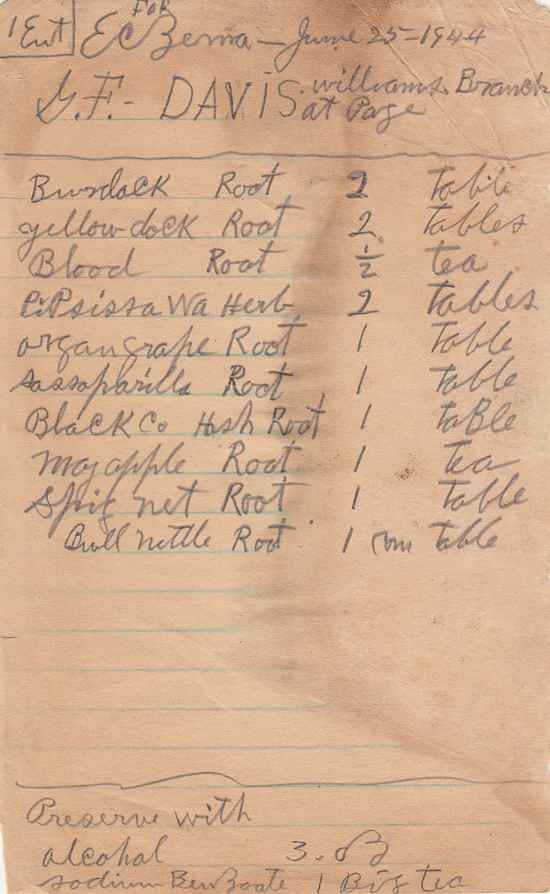 1 Ent For
EcZema - June 25-1944
G.F. - DAViS. williams. Branch
at Page
Burdock Root 2 Table
yellow dock Root 2 Tables
Blood Root ½ tea
PiPsissaWa Herb 2 Tables
organgrape Root 1 Table
sassaparilla Root 1 Table
Black Co Hosh Root 1 TaBle
May apple Root 1 Tea
Spic net Root 1 Table
Bull nettle Root 1 Table
Preserve with
alcohol 3.
sodium Benzoate 1 Big tea